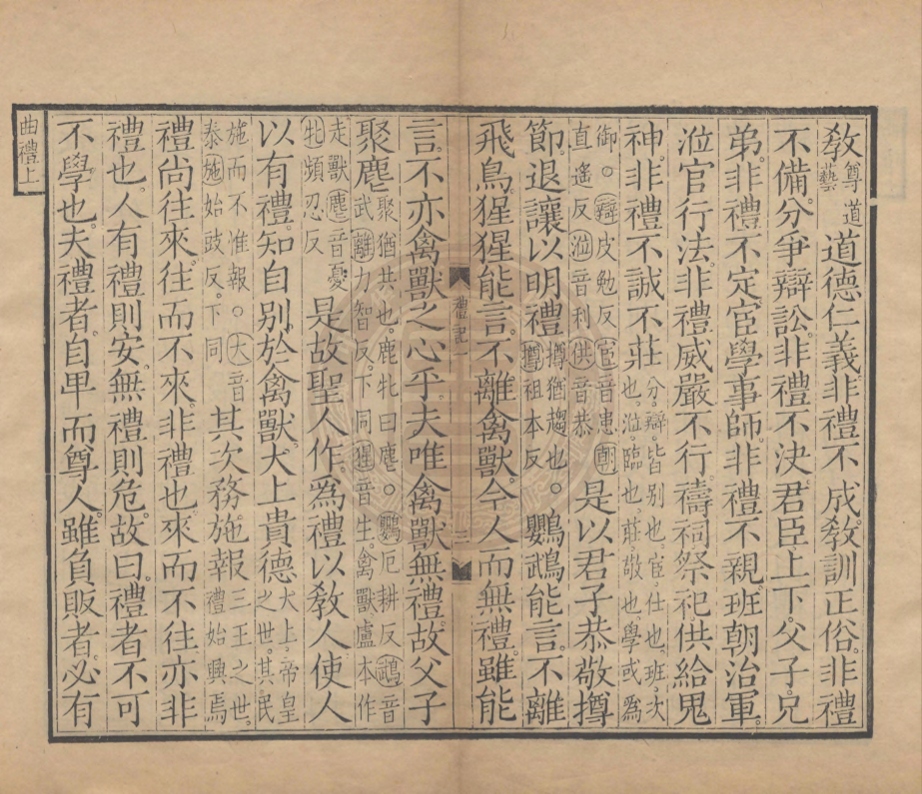 教尊道藝道德仁義非禮不成教訓正俗非禮
不備分爭辯訟非禮不決君臣上下父子兄
弟非禮不定宦學事師非禮不親班朝治軍
涖官行法非禮威嚴不行禱祠祭祀供給鬼
神非禮不誠不莊分辯皆別也宦仕也班次也涖臨也莊敬也學或爲
御○辯皮勉反宦音患朝直遙反涖音利供音恭是以君子恭敬撙
節退讓以明禮撙猶趨也○撙祖本反鸚䳇能言不離
飛鳥猩猩能言不離禽獸今人而無禮雖能
禮記一
三
言不亦禽獸之心乎夫唯禽獸無禮故父子
聚麀聚猶共也鹿牝曰麀○鸚厄耕反䳇音武離力智反下同猩音生禽獸盧本作
走獸麀音憂牝頻忍反是故聖人作爲禮以教人使人
以有禮知自別於禽獸大上貴德大上帝皇之世其民
施而不惟報○大音泰施始豉反下同其次務施報三王之世禮始興焉
禮尚往來往而不來非禮也來而不往亦非
禮也人有禮則安無禮則危故曰禮者不可
不學也夫禮者自卑而尊人雖負販者必有
曲禮上